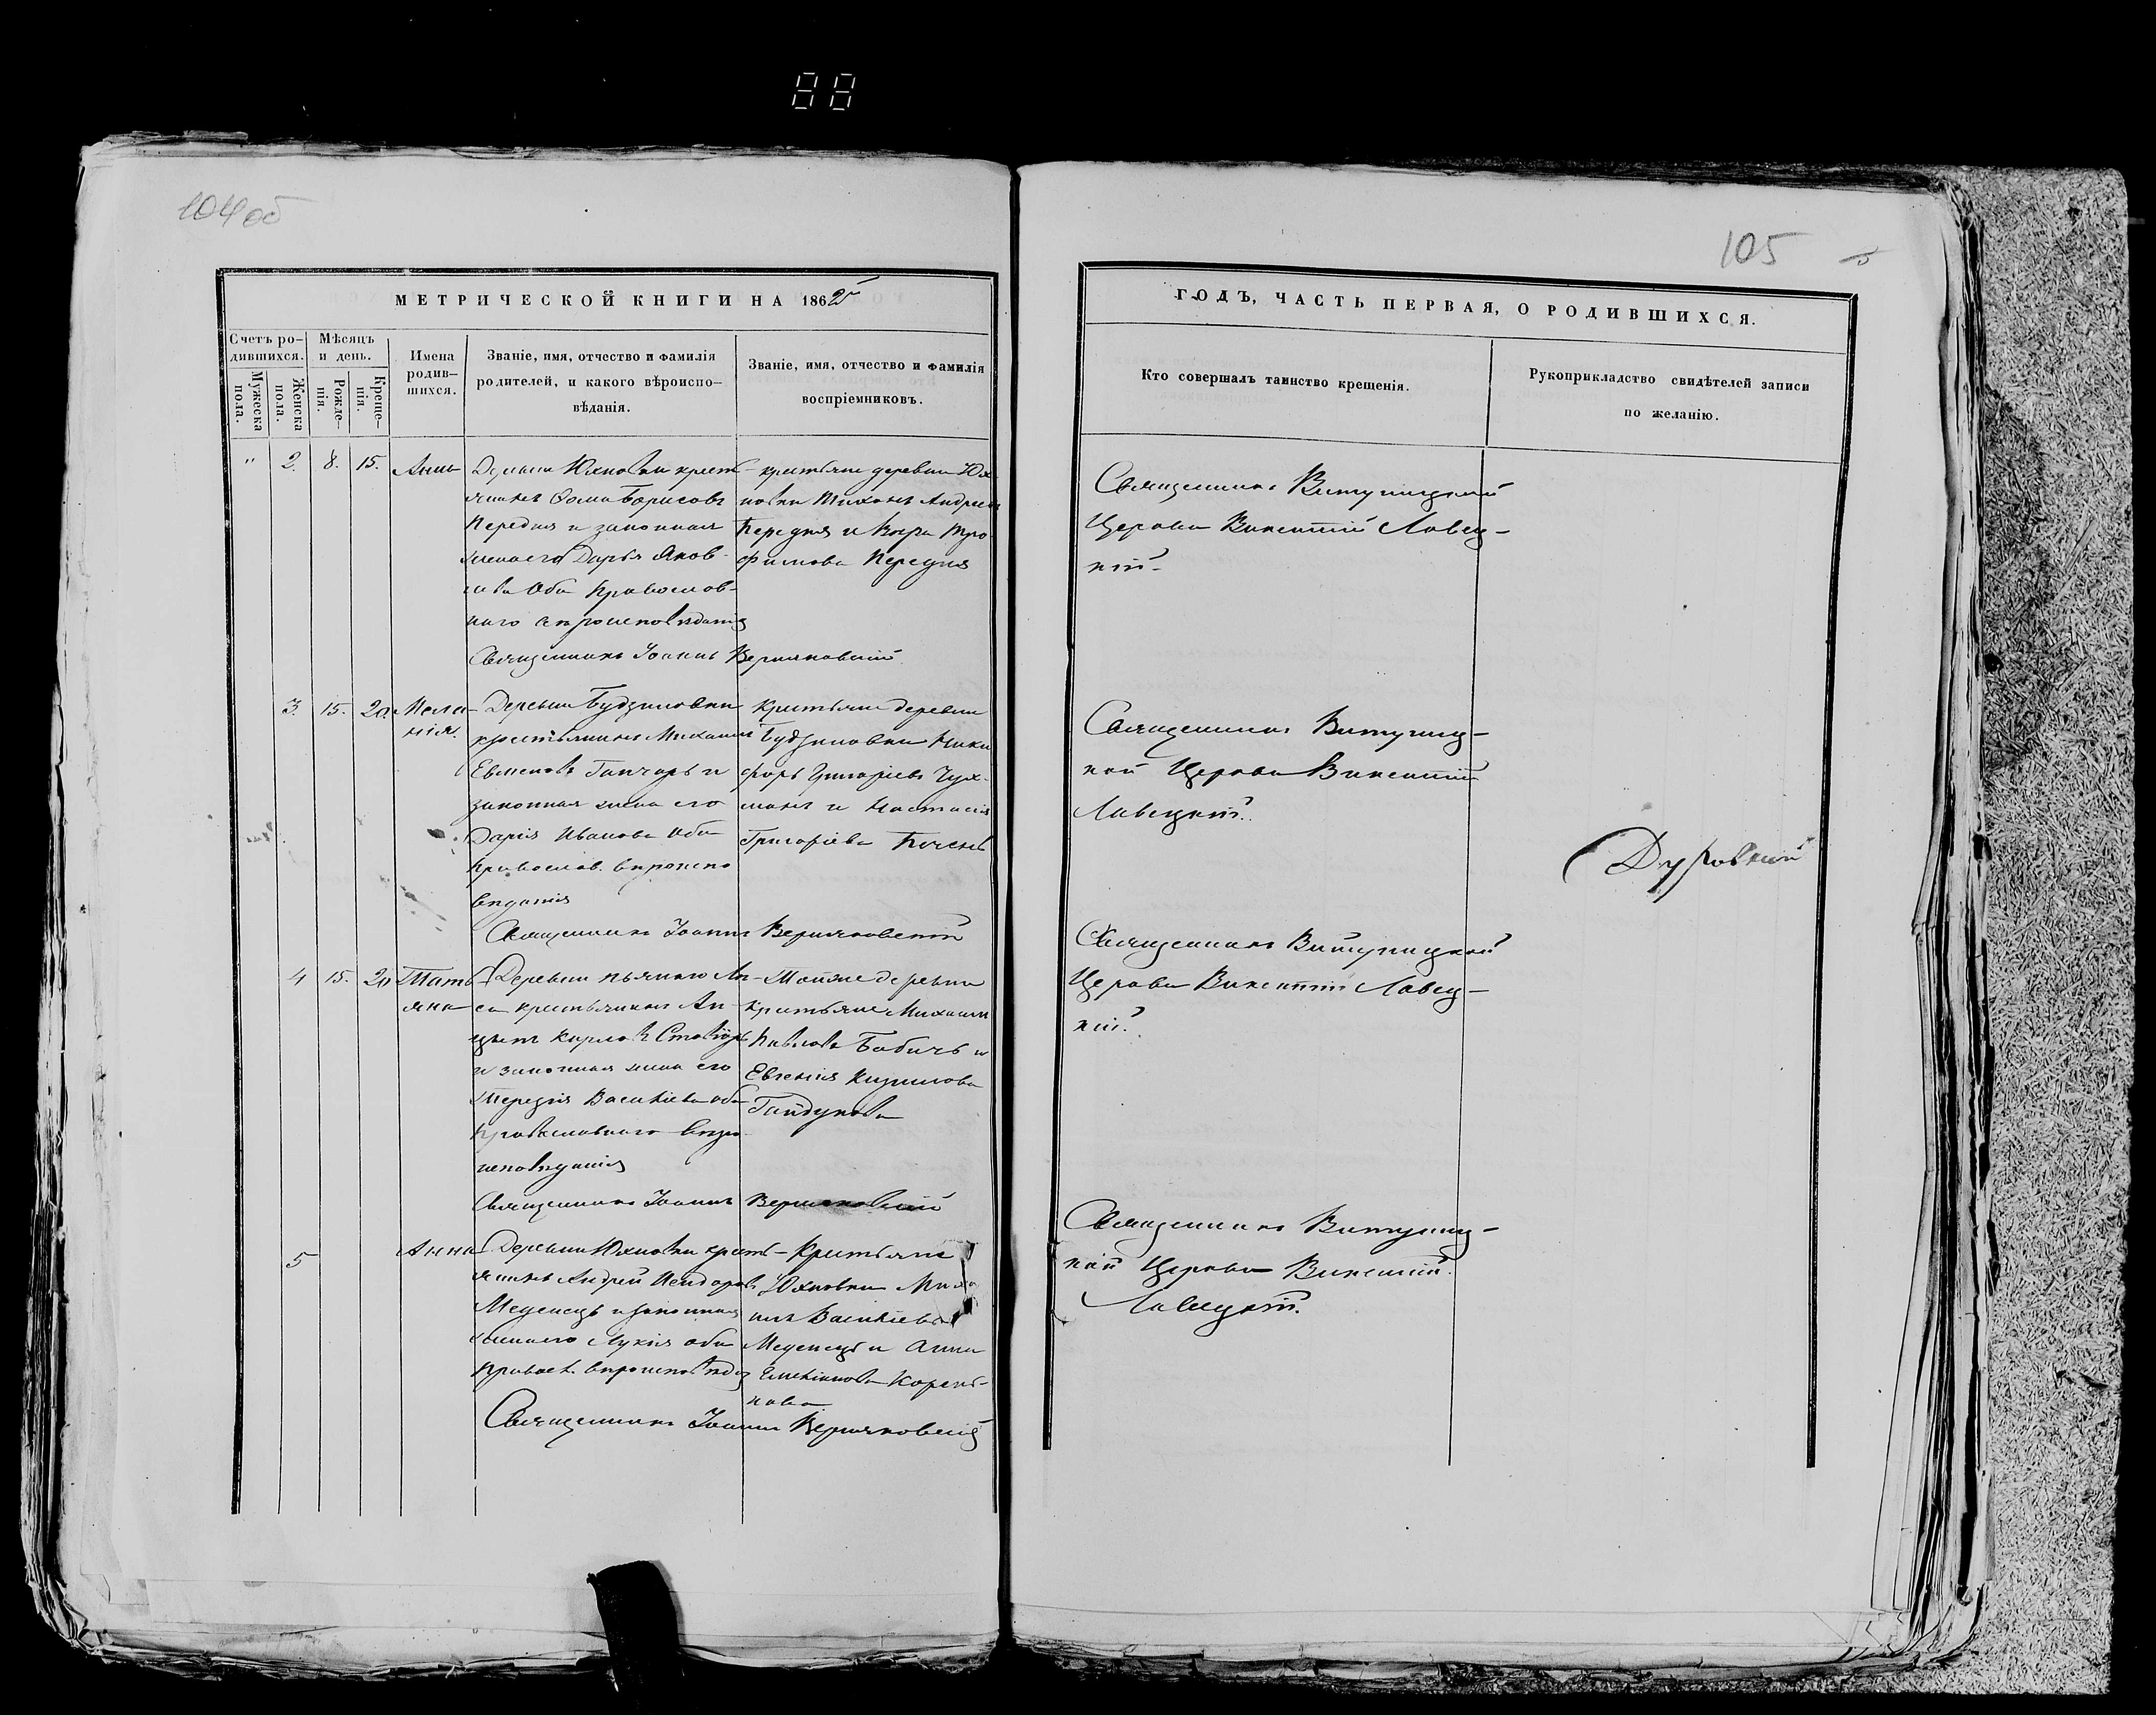 88
104 об
105
МЕТРИЧЕСКОЙ КНИГИ НА 1862
Счетъ ро-
дившихся.
Мужеска
пола.
Женска
пола.
Мѣсяцъ
и день.
Рожде-
нія.
Креще-
нія.
Имена
родив-
шихся.
Званіе, имя, отчество и фамилія
родителей, и какого вѣроиспо-
вѣданія.
Званіе, имя, отчество и фамилія
воспріемниковъ.
ГОДЪ, ЧАСТЬ ПЕРВАЯ, О РОДИВШИХСЯ.
Кто совершалъ таинство крещенія.
Рукоприкладство свидѣтелей записи
по желанію.
" 2. 8. 15.
Деревни Юхновки крестъ-
янинъ Ѳома Борисовъ
Передня и законная
жена его Дарья Яков-
лева Оба Православ-
наго вѣроисповѣданія
Священникъ Іоаннъ
крестьяне деревни Юх
новки Тихонъ Андреевъ
Передня и Вѣра Тро
фимова Передня
Священникъ
Церкви Викентій Лавец-
кій.
3. 15. 20. Мела-
нія.
Деревни Будзиловки
крестьянинъ Михаилъ
законная жена его
Дарія Иванова Оба
Православ. вѣроиспо
вѣданія
Священникъ Іоаннъ
Крестьяне деревни
Будзиловки Ники
форъ Григоріевъ
и Настасія
Григоріева
Священникъ
кой Церкви Викентій
Лавецкій.
Дубовскій
4 15. 20 Тать
яна
Деревни
крестьянинъ
и законная жена его
Васильева оба
Православнаго вѣро
исповѣданія
Священникъ Іоаннъ
Тойже деревни
Крестьяне Михаилъ
Павловъ Бабичъ и
Евгенія Кирилова
Гайдукова
Священникъ
Церкви Викентій Лавец-
кій.
5 Анна
Деревни Юхновки кресть-
янинъ Андрей Исидоровъ
Меденецъ и законная
жена его Лукія оба
Правосл. вѣроисповѣд.
Священникъ Іоаннъ
Крестьяне
Юхновки Миха
илъ Васильевъ
Меденецъ и Анна
Емельянова
нова
Священникъ
кой Церкви Викентій
Лавецкій.